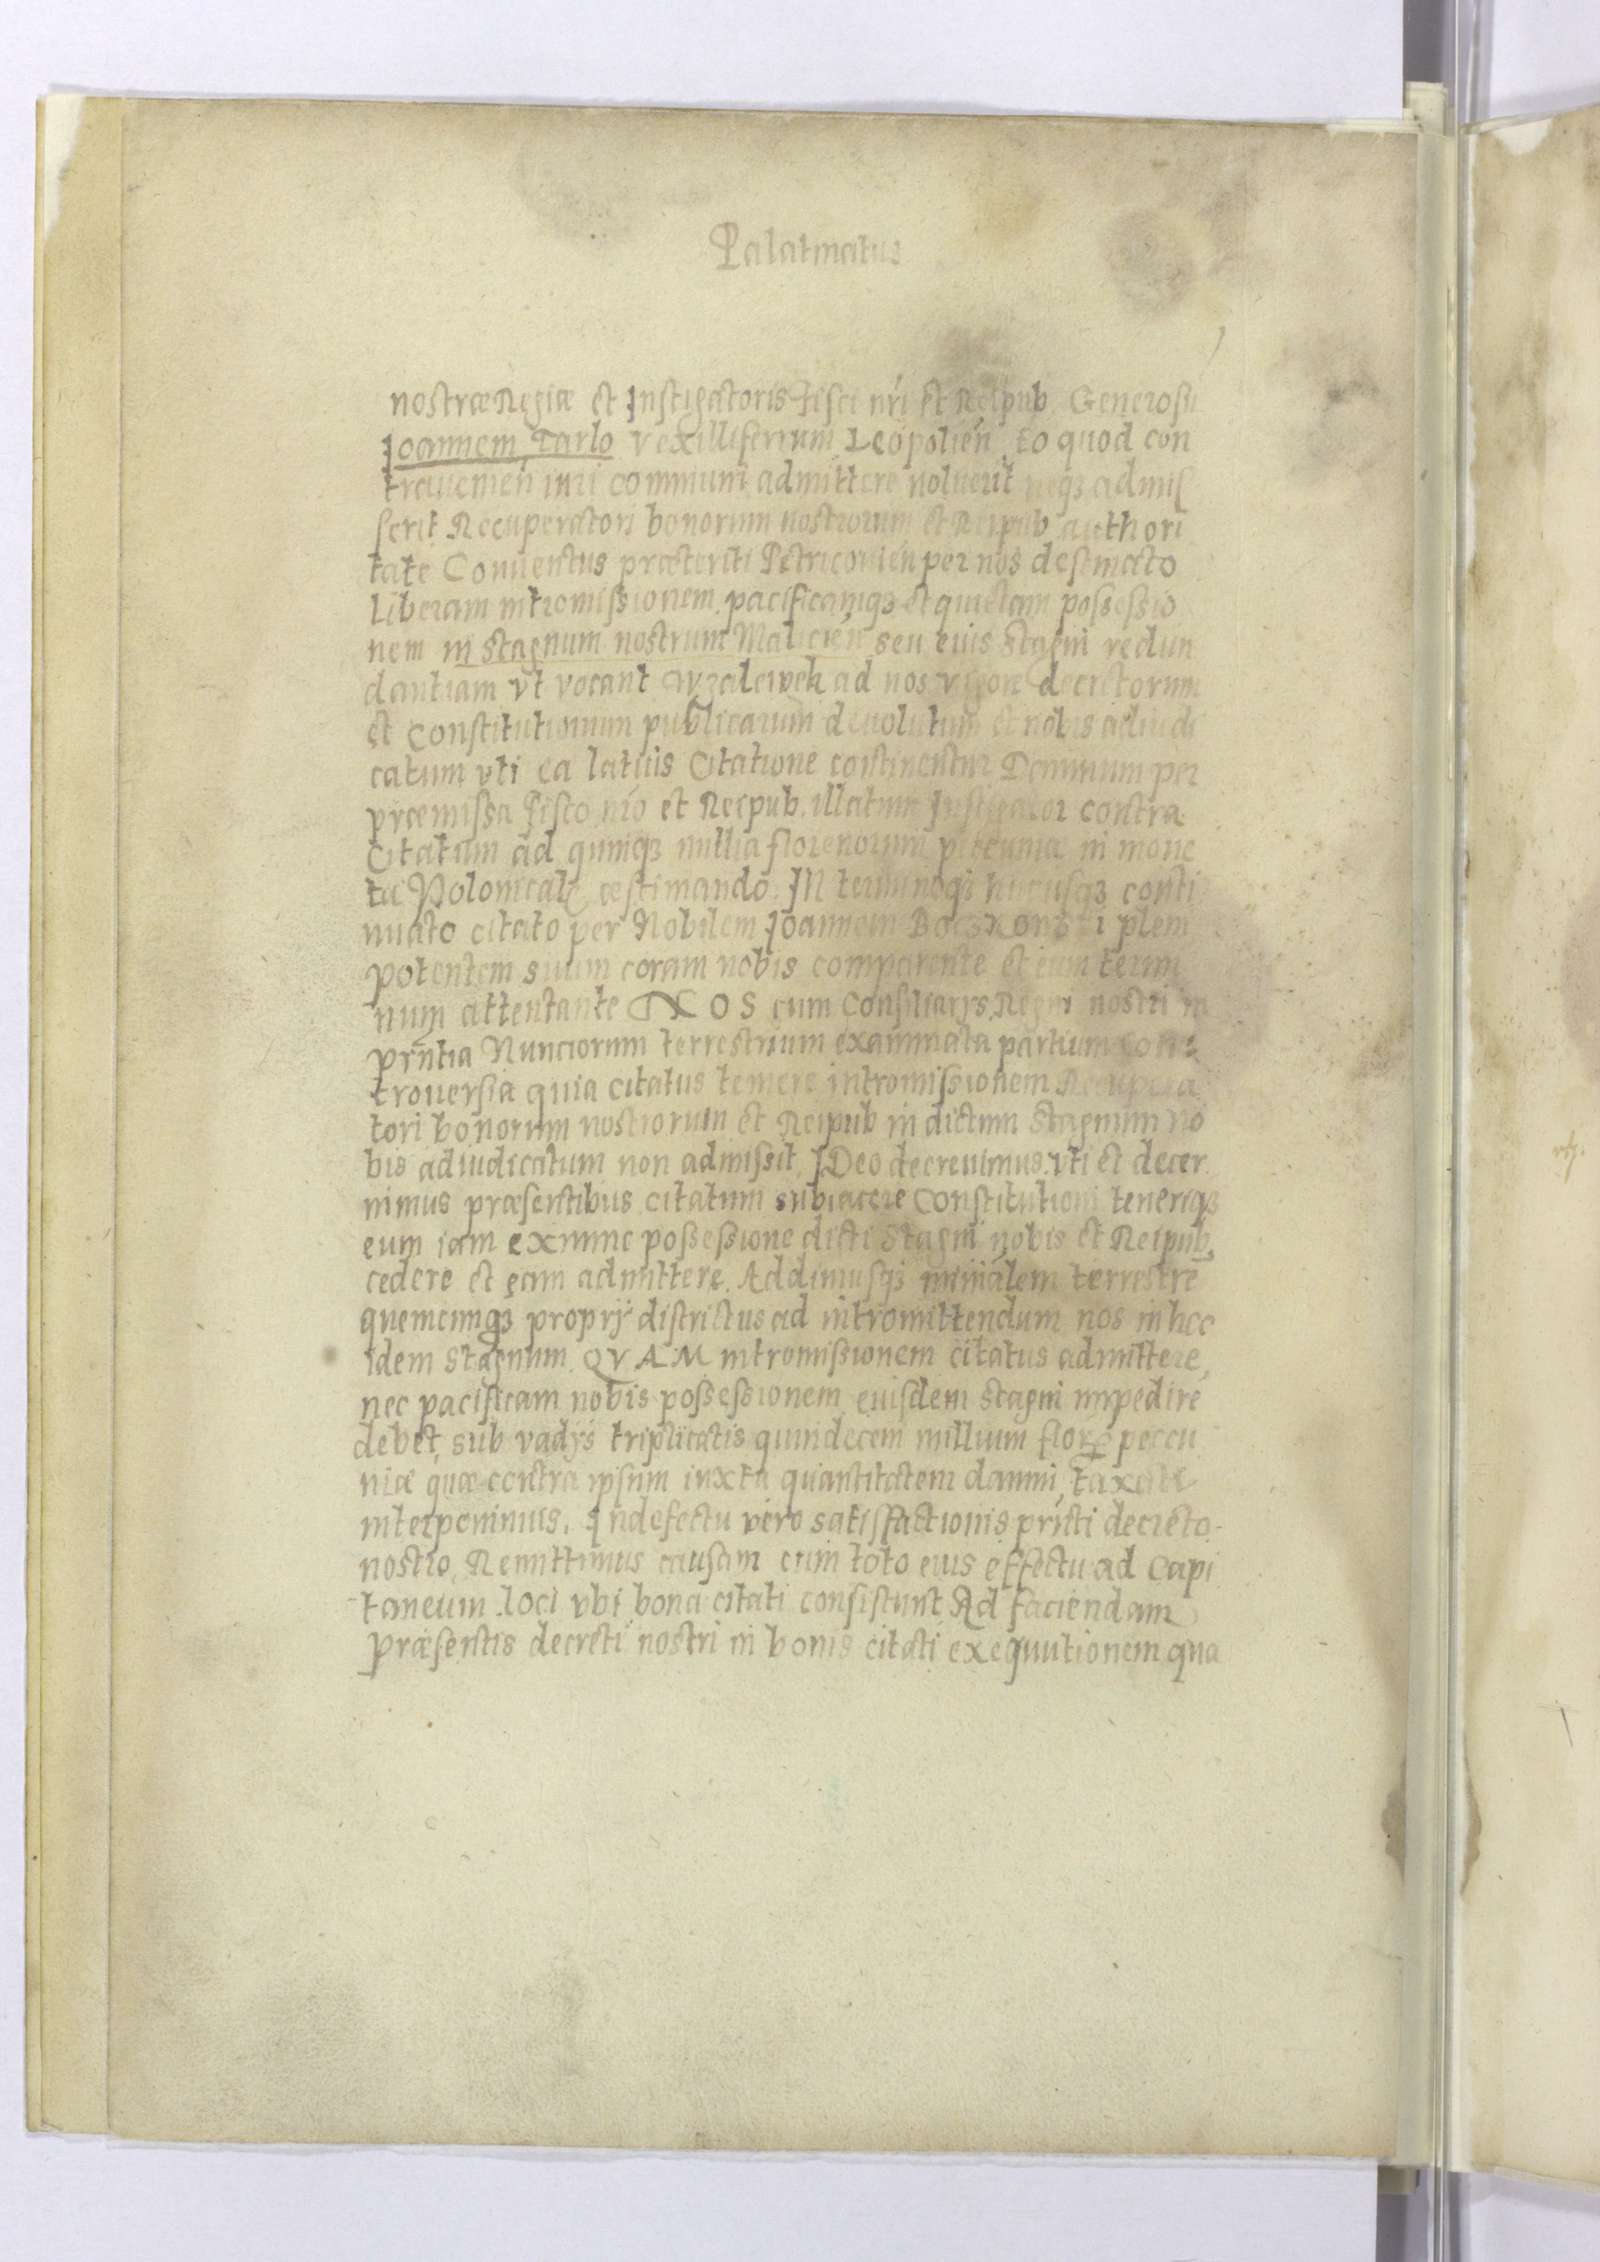 Palatinatus
nostræ Regiæ et Instigatoris Fisci nri et Reipub. Generosu
Joannem Tarlo vexilliferrum Leopolien eo quod con
travenien iuri communi admittere noluerit neqз admis
serit Recuperatori bonorum nostrorum et Reipub authori
tate Conventus præteriti Petricovien per nos destinato
Liberam intromissionem pacificamqз et quietam possessio
nem in stagnum nostrum Malicien seu eius stagni redun
dantiam vt vocant ad nos vigore decretorum
et Constitutionum publicarum devolutum et nobis adiudi
catum vti ea latius Citatione continentur Damnum per
præmissa Fisco nro et Reipub. illatum Instigator contra
Citatum ad quinqз millia florenorum pecuniæ in mone
ta Polonicali æstimando. IN terminoqз hucusqз conti
nuato citato per Nobilem Joannem pleni
potentem suum coram nobis comparente et eum termi
num attentante NOS cum Consiliarijs Regni nostri in
prntia Nunciorum terrestrium examinata partium con
troversia quia citatus temere intromissionem Recupera
tori bonorum nostrorum et Reipub in dictum Stagnum no
bis adiudicatum non admissit. IDeo decrevimus vti et decer
nimus præsentibus citatum subiacere Constitutioni teneriqз
eum iam exnunc possessione dicti Stagni nobis et Reipub.
cedere et eam admittere. Addimusqз minialem terrestre
quemcunqз proprij districtus ad intromittendum nos in hoc
idem Stagnum. QVAM intromissionem citatus admittere,
nec pacificam nobis possessionem eiusdem stagni impedire
debet, sub vadijs triplicatis quindecem millium flor peccu
niæ quæ contra ipsum iuxta quantitatem damni taxate
interponimus. Indefectu vero satisfactionis prncti decreto
nostro, Remittimus causam cum toto eius effectu ad Capi
taneum loci vbi bona citati consistunt Ad faciendam
Præsentis decreti nostri in bonis citati exequutionem qua